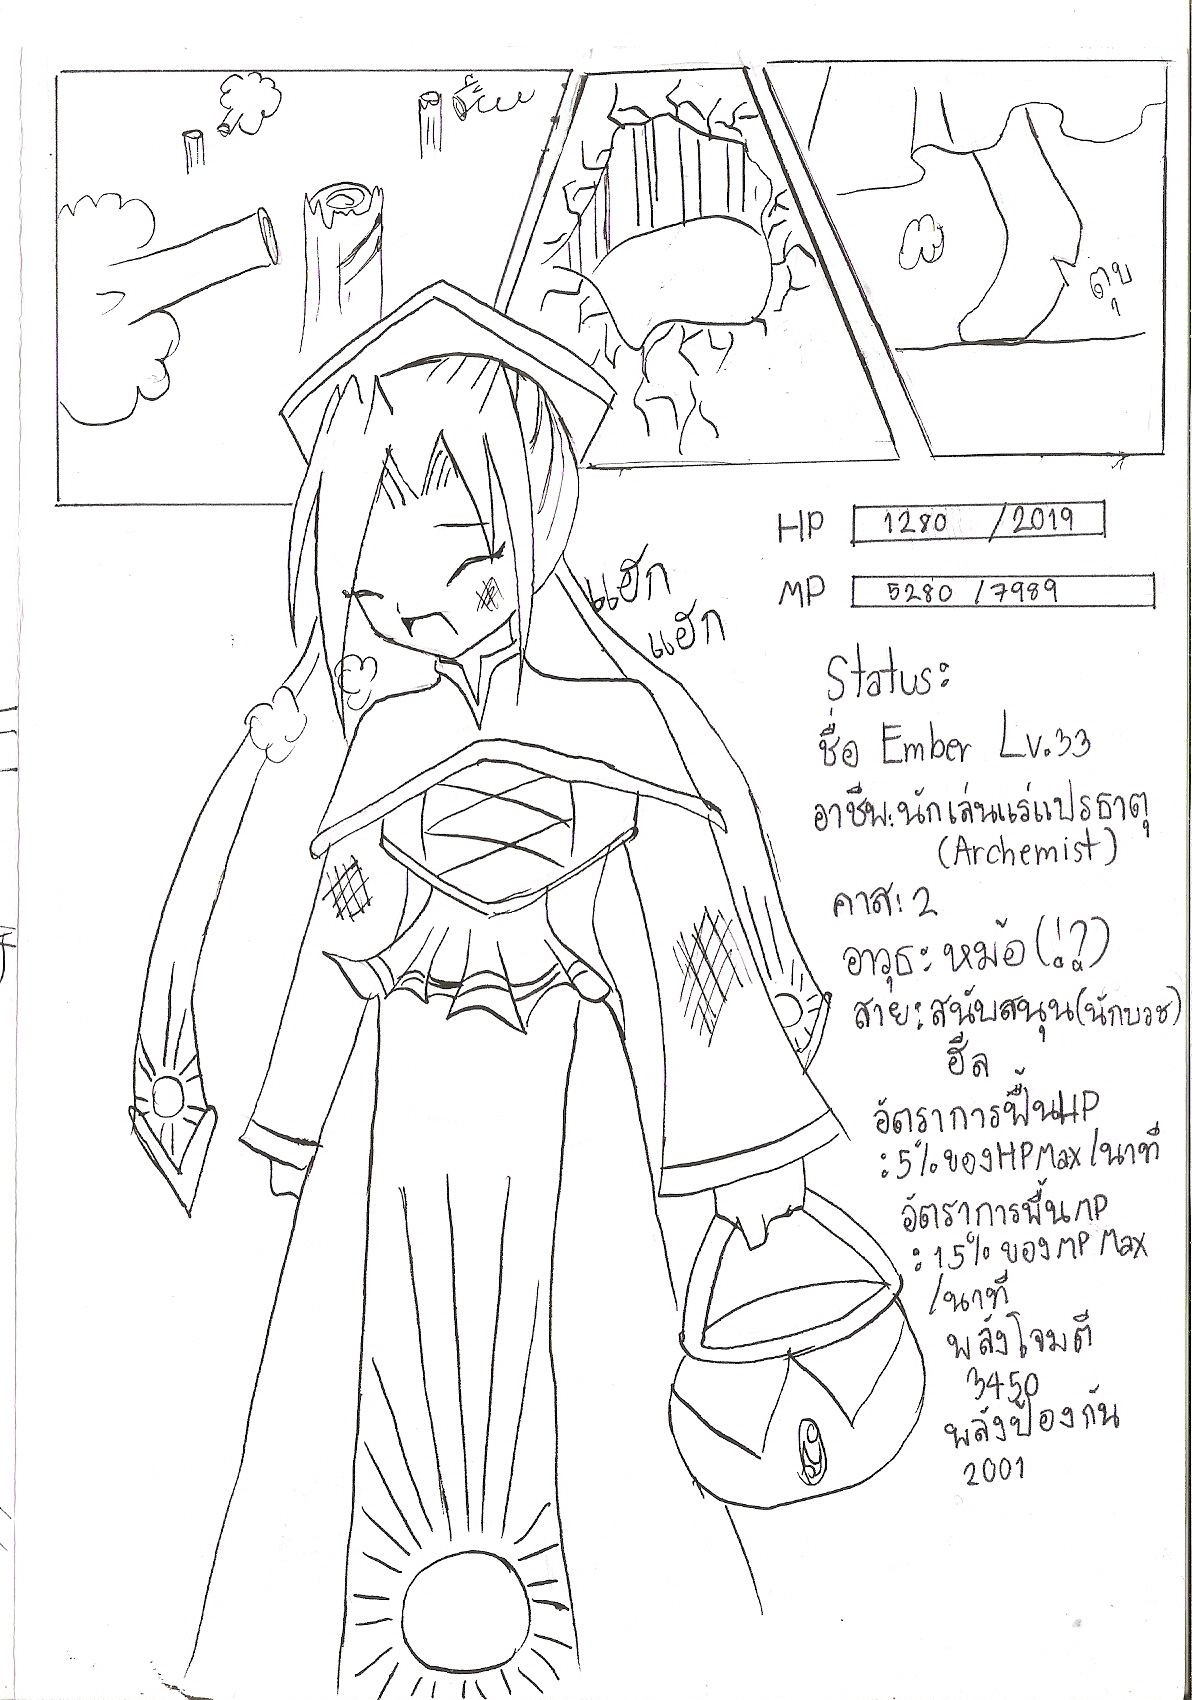 ตุบ
HP 1280 /2019
แฮ่ก
MP 5280 /7989
แฮ่ก
Status:
ชื่อ Ember Lv.33
อาชีพ:นักเล่นแร่แปรธาตุ
(Archemist)
คาส:2
อาวุธ:หม้อ(!?)
สาย:สนับสนุน(นักบวช)
ฮีล
อัตราการฟื้นHP
:5%ของHPMax/นาที
อัตราการฟื้นMP
:15%ของMPMax
/นาที
พลังโจมตี
3450
พลังป้องกัน
2001